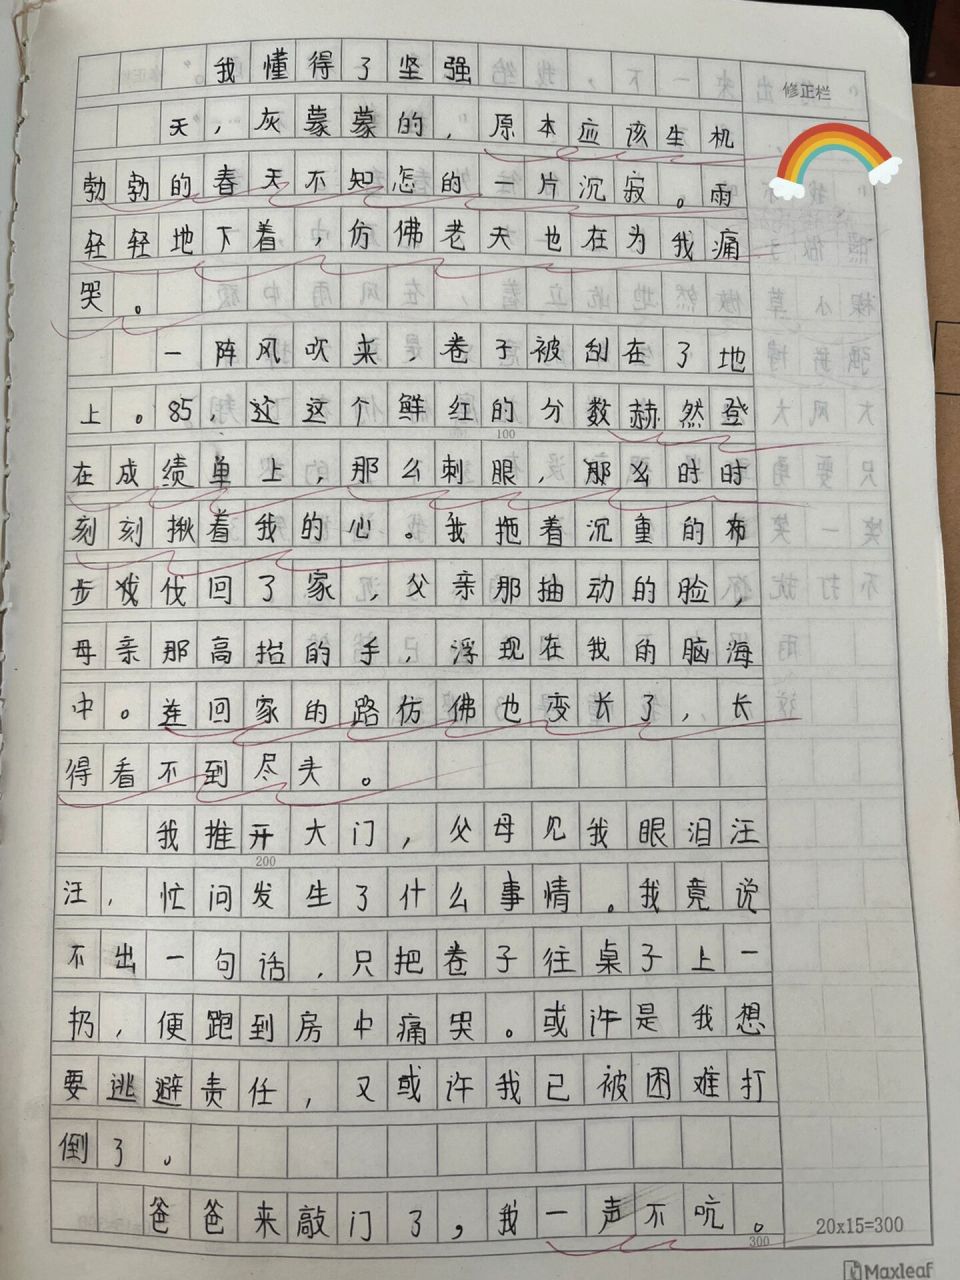 我懂得了坚强
修正栏
天，灰蒙蒙的，原本应该生机
勃勃的春天不知怎的一片沉寂。雨
轻轻地下着，仿佛老天也在为我痛
哭。
一阵风吹来，卷子被刮在了地
上。85，这这个鲜红的分数赫然登
100
在成绩单上，那么刺眼，那么时时
刻刻揪着我的心。我拖着沉重的布
步伐回了家，父亲那抽动的脸，
母亲那高抬的手，浮现在我的脑海
中。连回家的路仿佛也变长了，长
得看不到尽头。
我推开大门，父母见我眼泪汪
200
汪，忙问发生了什么事情。我竟说
不出一句话，只把卷子往桌子上一
扔，便跑到房中痛哭。或许是我想
要逃避责任，又或许我已被困难打
倒了。
爸爸来敲门了，我一声不吭。
300
20x15=300
Maxleaf